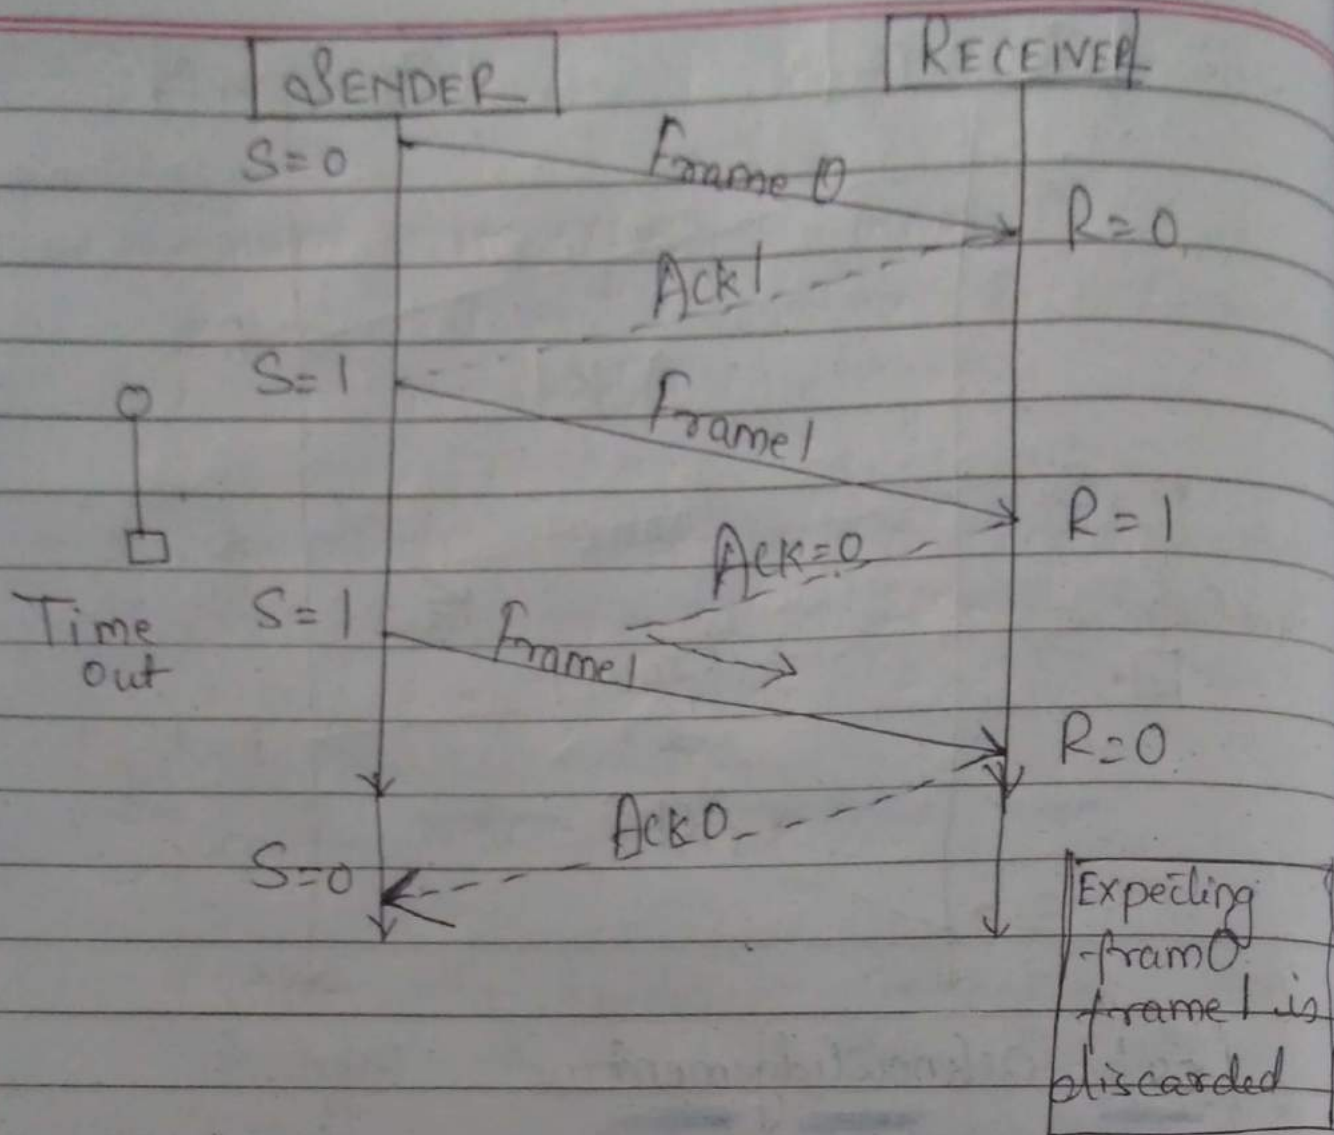 SENDER
RECEIVER
S=0
Frame 0
R=0
Ack1
S=1
Frame1
R=1
Ack=0
Time
out
S=1
Frame1
R=0
Ack0
S=0
Expecting
fram0
frame1 is
discarded